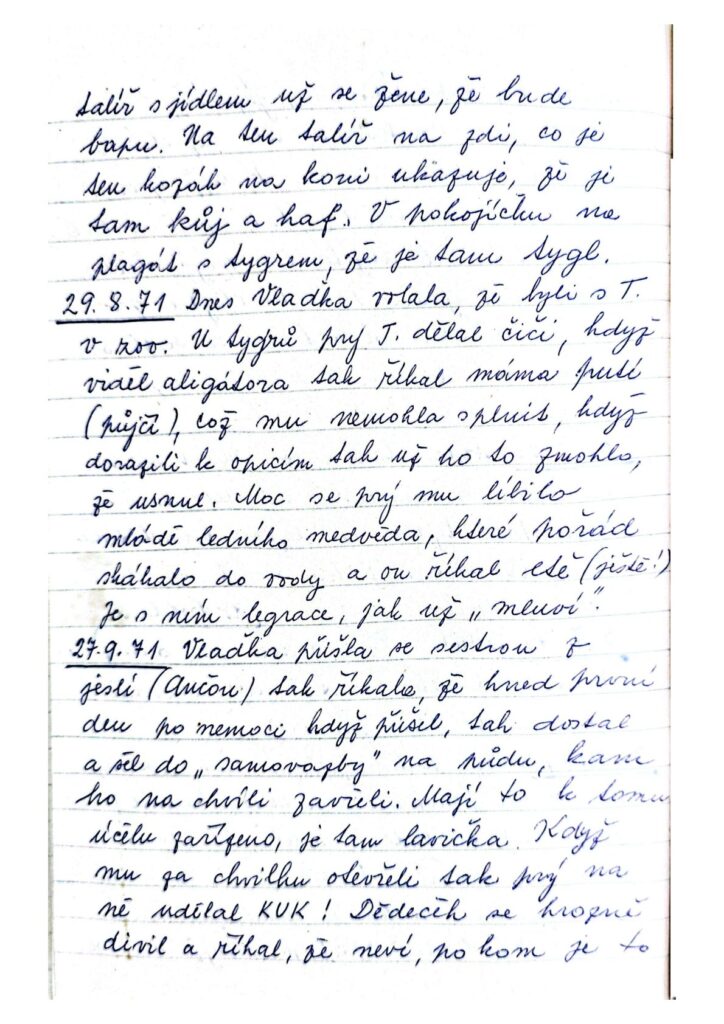 talíř s jídlem už se žene, že bude
bapu. Na ten talíř na zdi, co je
ten kozák na koni ukazuje, že je
tam kůj a haf. V pokojíčku na
plagát s tygrem, že je tam tygl.
29.8.71 Dnes Vlaďka volala, že byli s T.
v zoo. U tygrů prý T. dělal čiči, když
viděl aligátora tak říkal máma putí
(půjčí), což mu nemohla splnit, když
dorazili k opicím tak už ho to zmohlo,
že usnul. Moc se prý mu líbilo
mládě ledního medvěda, které pořád
skákalo do vody a on říkal etě (ještě!)
Je s ním legrace, jak už „mluví".
27.9.71 Vlaďka přišla se sestrou z
jeslí (Ančou) tak říkala, že hned první
den po nemoci když přišel, tak dostal
a šel do „samovazby" na půdu, kam
ho na chvíli zavřeli. Mají to k tomu
účelu zařízeno, je tam lavička. Když
mu za chvilku otevřeli tak prý na
ně udělal KUK! Dědeček se hrozně
divil a říkal, že neví, po kom je to